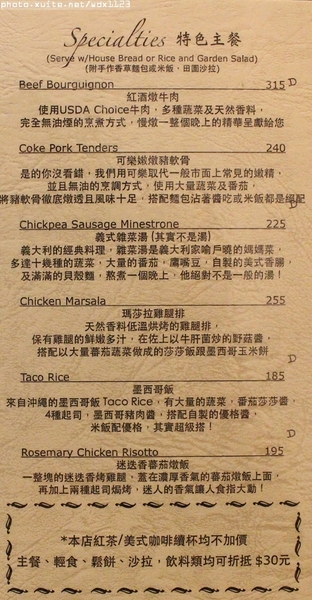 photo.xuite.net/wox1123
Specialties 特色主餐
(Serve w/House Bread or Rice and Garden Salad)
(附手作香草麵包或米飯，田園沙拉)
Beef Bourguignon 315 D
紅酒燉牛肉
使用USDA Choice牛肉，多種蔬菜及天然香料，
完全無油煙的烹煮方式，慢燉一整個晚上的精華呈獻給您
Coke Pork Tenders 240
可樂嫩燉豬軟骨
是的你沒看錯，我們用可樂取代一般市面上常見的嫩精，
並且無油的烹調方式，使用大量蔬菜及番茄，
將豬軟骨徹底燉透且風味十足，搭配麵包沾著醬吃或米飯都是絕配
Chickpea Sausage Minestrone 225 D
義式雜菜湯 (其實不是湯)
義大利的經典料理，雜菜湯是義大利家喻戶曉的媽媽菜，
多達十幾種的蔬菜，大量的番茄，鷹嘴豆，自製的美式香腸，
及滿滿的貝殼麵，熬煮一個晚上，他絕對不是一般的湯！
Chicken Marsala 255
瑪莎拉雞腿排
天然香料低溫烘烤的雞腿排，
保有雞腿的鮮嫩多汁，在佐上以牛肝菌炒的野菇醬，
搭配以大量蕃茄蔬菜做成的莎莎飯跟墨西哥玉米餅
Taco Rice 185 D
墨西哥飯
來自沖繩的墨西哥飯 Taco Rice，有大量的蔬菜，番茄莎莎醬，
4種起司，墨西哥豬肉醬，搭配自製的優格醬，
米飯配優格，其實超級搭！
Rosemary Chicken Risotto 195 D
迷迭香蕃茄燉飯
一整塊的迷迭香烤雞腿，蓋在濃厚香氣的蕃茄燉飯上面，
再加上兩種起司焗烤，迷人的香氣讓人食指大動！
*本店紅茶/美式咖啡續杯均不加價
主餐、輕食、鬆餅、沙拉，飲料類均可折抵 $30元